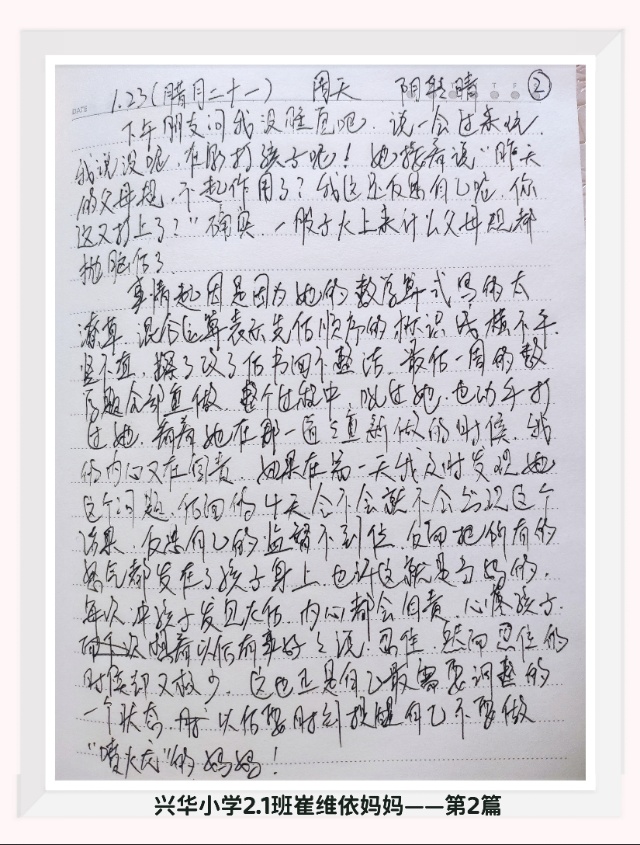 1.23(腊月二十一) 周天 阴转晴 ②
下午朋友问我没睡觉吧,说一会过来玩,
我说没呢,在打孩子呢!她接着说"昨天
的父母规,不起作用了?我这还反思自己呢,你
这又打上了?"确实,一股子火上来什么父母规都
抛脑后了。
事情起因是因为她的数学算式写的太
潦草,混合运算表示先后顺序的标识线横不平
竖不直,擦了改了后书面不整洁,最后一周的数
学题全部重做,整个过程中,吼过她,也动手打
过她,看着她在那一道道重新做的时候,我
的内心又在自责,如果在第一天我及时发现她
这个问题,后面的4天会不会就不会出现这个
结果,反思自己的监督不到位,反而把所有的
怒气都发在了孩子身上,也许这就是当妈的,
每次冲孩子发且火后,内心都会自责,心疼孩子.
想着以后有事好之说,忍住,然而忍住的
时候却又很少,这也正是自己最需要调整的
一个状态,所以后要时刻提醒自己不要做
"喷火龙"的妈妈!
兴华小学2.1班崔维依妈妈——第2篇